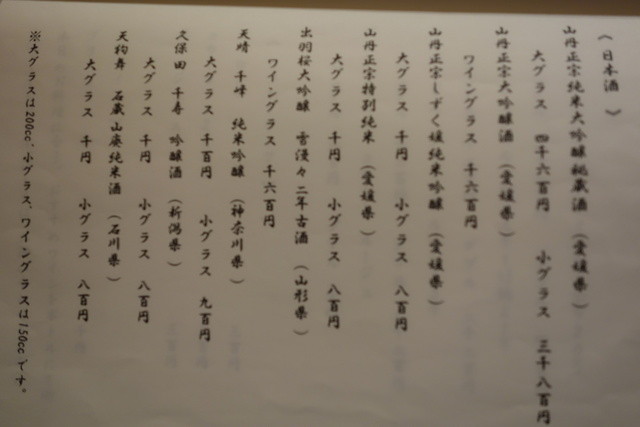 《日本酒》
山丹正宗純米大吟醸秘蔵酒（愛媛県）
大グラス 四千六百円 小グラス 三千八百円
山丹正宗大吟醸酒（愛媛県）
ワイングラス 千六百円
山丹正宗しずく媛純米吟醸（愛媛県）
大グラス 千円 小グラス 八百円
山丹正宗特別純米（愛媛県）
大グラス 千円 小グラス 八百円
出羽桜大吟醸 雪漫々二年古酒（山形県）
ワイングラス 千六百円
天晴 千峰 純米吟醸（神奈川県）
大グラス 千百円 小グラス 九百円
久保田 千寿 吟醸酒（新潟県）
大グラス 千円 小グラス 八百円
天狗舞 石蔵山廃純米酒（石川県）
大グラス 千円 小グラス 八百円
※大グラスは200cc、小グラス、ワイングラスは150ccです。